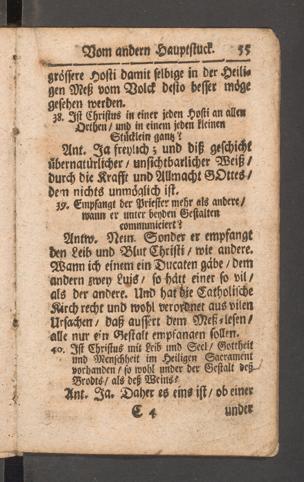 Vom andern Hauptstuck. 55
grössere Hosti damit selbige in der Heili-
gen Meß vom Volck desto besser möge
gesehen werden.
38. Ist Christus in einer jeden Hosti an allen
Orthen / und in einem jeden kleinen
Stücklein gantz?
Ant. Ja freylich; und diß geschicht
übernatürlicher / unsichtbarlicher Weiß /
durch die Krafft und Allmacht GOttes /
dem nichts unmöglich ist.
39. Empfangt der Priester mehr als andere /
wann er unter beyden Gestalten
communiciert?
Antw. Nein. Sonder er empfangt
den Leib und Blut Christi / wie andere.
Wann ich einem ein Ducaten gäbe / dem
andern zwey Luis / so hätt einer so vil /
als der andere. Und hat die Catholische
Kirch recht und wohl verordnet aus vilen
Ursachen / daß aussert dem Meß-lesen /
alle nur ein Gestalt empfangen sollen.
40. Ist Christus mit Leib und Seel / Gottheit
und Menschheit im Heiligen Sacrament
vorhanden / so wohl under der Gestalt deß
Brodts / als deß Weins?
Ant. Ja. Daher es eins ist / ob einer
E 4 under